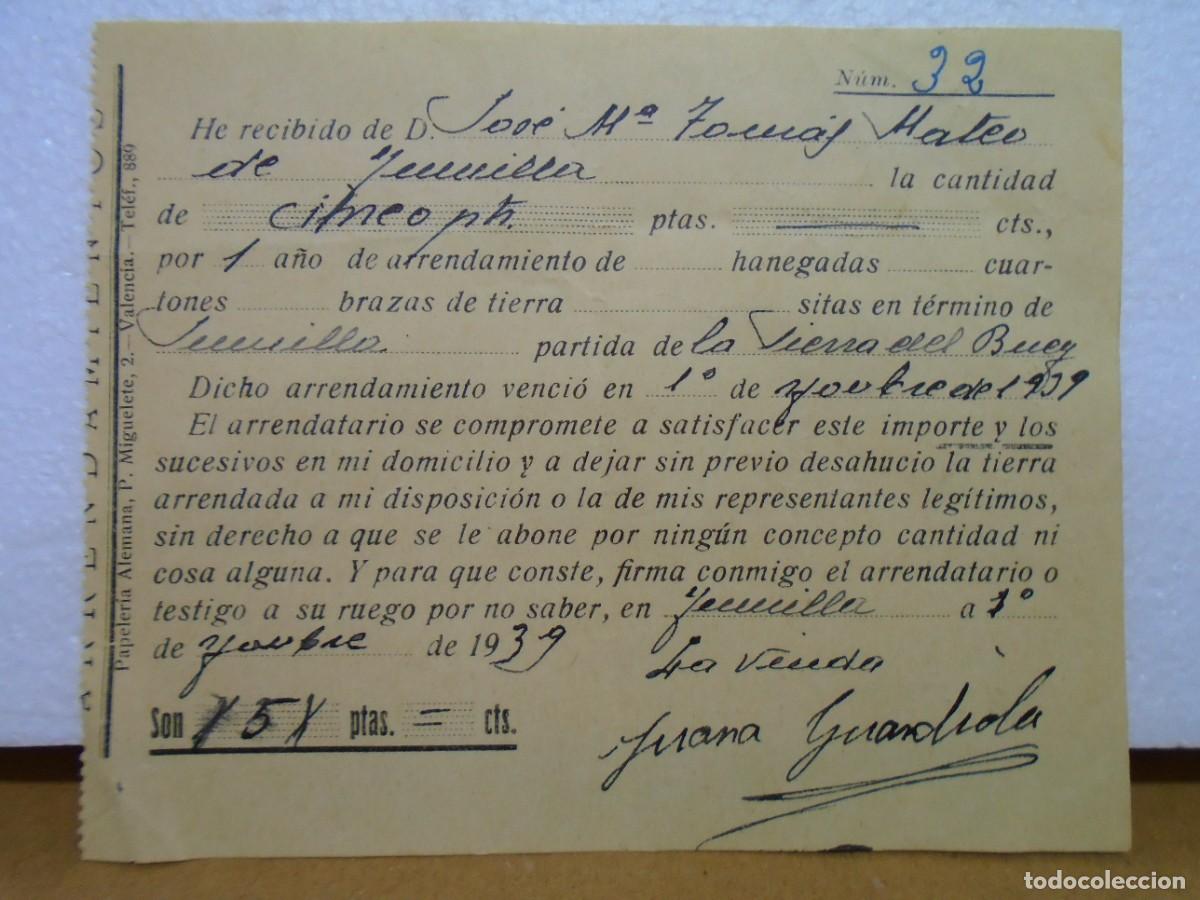 ARRENDAMIENTOS
Papelería Alemana, P. Miguelete, 2.—Valencia.—Teléf., 889
Núm. 32
He recibido de D. José Mª Tomás Mateo
de Jumilla la cantidad
de cinco pts. ptas. cts.,
por 1 año de arrendamiento de hanegadas cuar-
tones brazas de tierra sitas en término de
Jumilla partida de la Tierra del Buey
Dicho arrendamiento venció en 1º de de 1939
El arrendatario se compromete a satisfacer este importe y los
sucesivos en mi domicilio y a dejar sin previo desahucio la tierra
arrendada a mi disposición o la de mis representantes legítimos,
sin derecho a que se le abone por ningún concepto cantidad ni
cosa alguna. Y para que conste, firma conmigo el arrendatario o
testigo a su ruego por no saber, en Jumilla a 1º
de de 1939
La Viuda
Son 5 ptas. = cts.
Juana Guardiola
todocoleccion